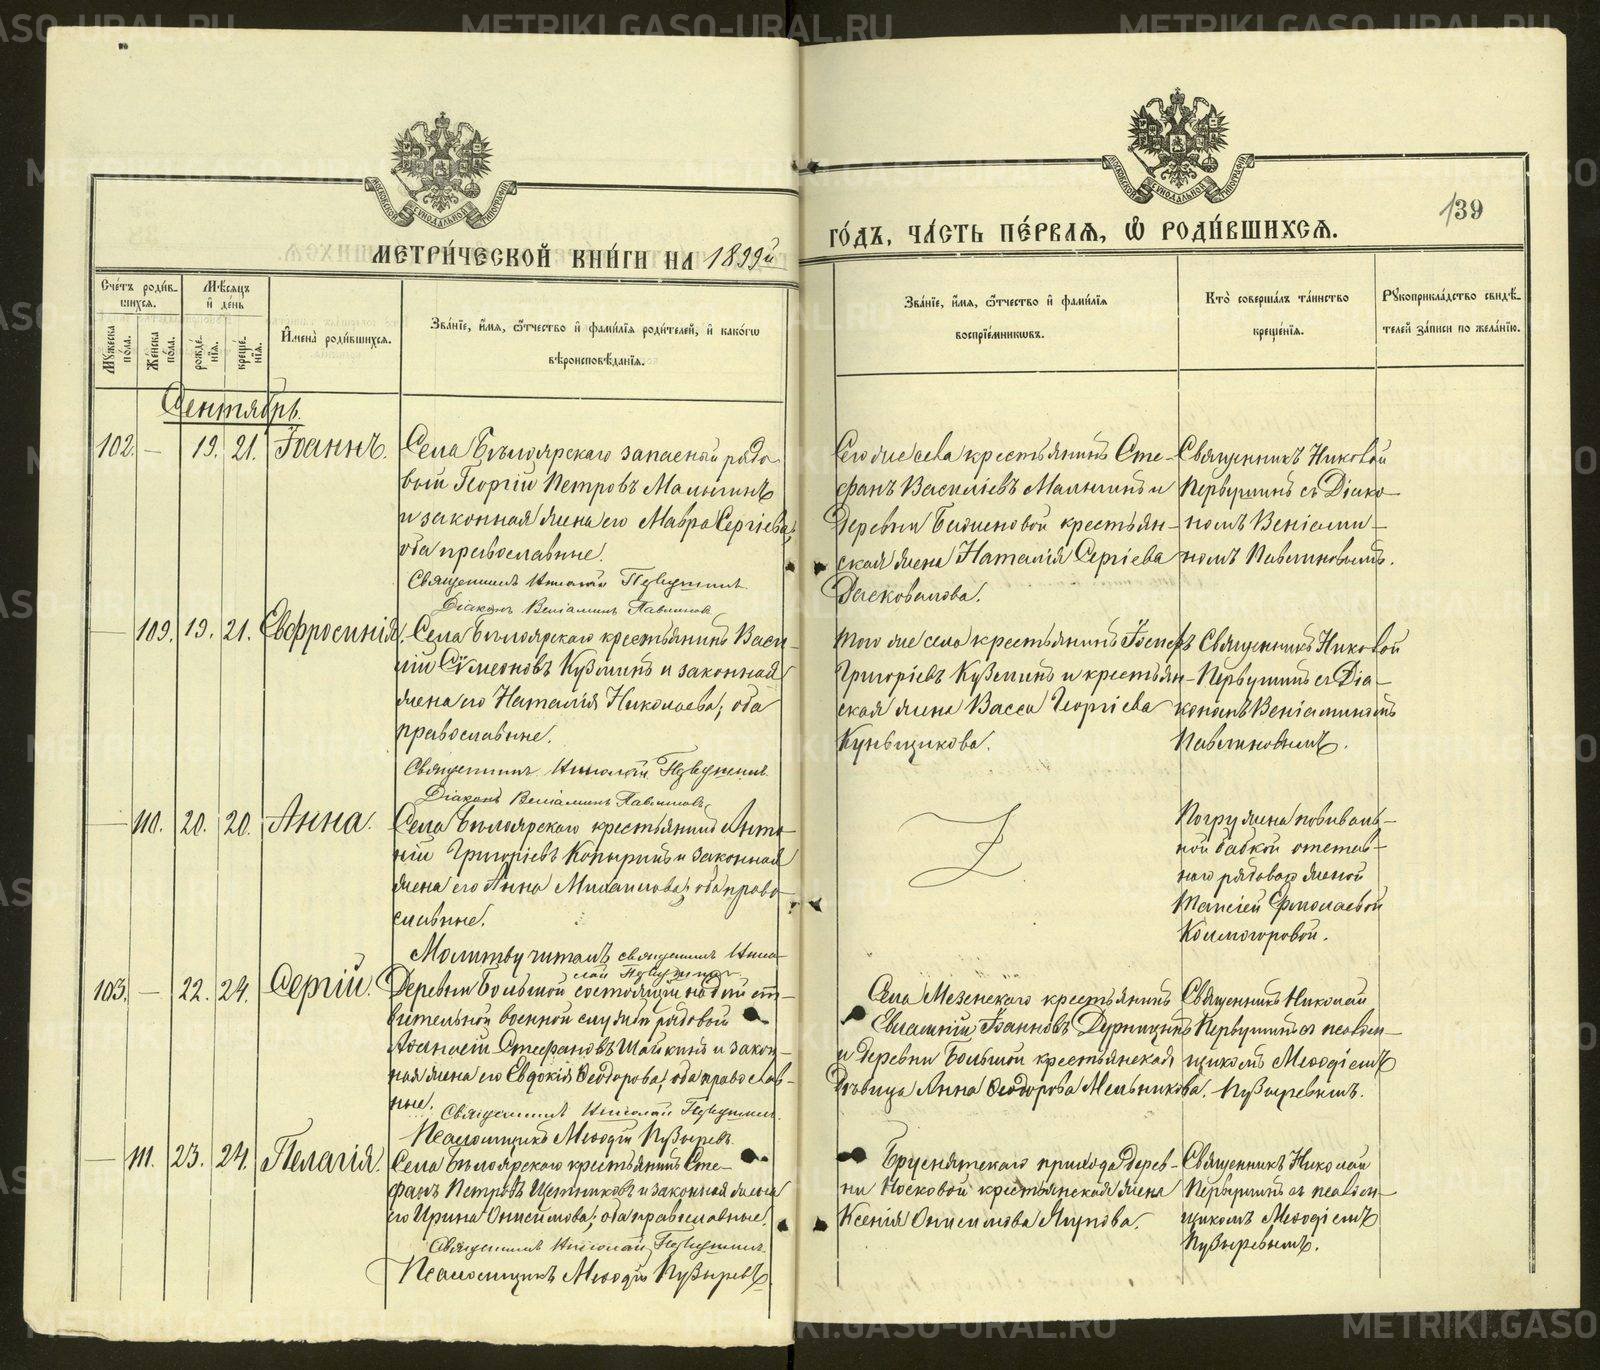 METRIKI.GASO-URAL.RU
139
МЕТРИ́ЧЕСКОЙ КНИ́ГИ НА 1899й
ГО́ДЪ, ЧА́СТЬ ПЕ́РВАѦ, Ѡ РОДИ́ВШИХСѦ.
Сче́тъ роди́вшихсѧ.
Мꙋ́жеска по́ла.
Же́нска по́ла.
Мѣ́сѧцъ и де́нь
рожде́нїѧ.
креще́нїѧ.
И҆мена̀ роди́вшихсѧ.
Зва́нїе, и҆́мѧ, ѻ҆́тчество и҆ фами́лїѧ роди́телей, и҆ како́гѡ
вѣроисповѣ́данїѧ.
Зва́нїе, и҆́мѧ, ѻ҆́тчество и҆ фами́лїѧ
воспрїе́мникѡвъ.
Кто̀ соверша́лъ та́инство
креще́нїѧ.
Рꙋкоприкла́дство свидѣ́телей за́писи по жела́нїю.
Сентябрь.
102. — 19. 21. Іоаннъ.
Села Бѣлоярскаго запасный рядовой Георгій Петровъ Малыгинъ
и законная жена его Мавра Сергіева;
оба православные.
Священникъ Николай Первушинъ
Діаконъ Веніаминъ Павлиновъ
Того же села крестьянинъ Стефанъ Василіевъ Малыгинъ и
деревни крестьянская жена Наталія Сергіева
Священникъ Николай
Первушинъ съ Діакономъ Веніаминомъ Павлиновымъ.
— 109. 19. 21. Евфросинія.
Села Бѣлоярскаго крестьянинъ Василій Сѵмеоновъ Кузминъ и законная
жена его Наталія Николаева; оба
православные.
Священникъ Николай Первушинъ
Діаконъ Веніаминъ Павлиновъ
Того же села крестьянинъ Іосифъ
Григоріевъ Кузминъ и крестьянская жена Васса Георгіева
Куньщикова.
Священникъ Николай
Первушинъ съ Діакономъ Веніаминомъ
Павлиновымъ.
— 110. 20. 20. Анна.
Села Бѣлоярскаго крестьянинъ Антоній Григоріевъ Копыринъ и законная
жена его Анна Михаилова; оба православные.
Молитву читалъ священникъ Николай Первушинъ
Погружена повивальной бабкой отставнаго рядоваго женой
Ермолаевой
Колмогоровой.
103. — 22. 24. Сергій.
Деревни Большой состоящій на дѣйствительной военной службѣ рядовой
Аѳанасій Стефановъ Шапкинъ и законная жена его Евдокія Ѳеодорова; оба православные.
Священникъ Николай Первушинъ
Псаломщикъ Меѳодій Пузыревъ
Села Мезенскаго крестьянинъ
Евлампій Іоанновъ Дурницинъ
и деревни Большой крестьянская
дѣвица Анна Ѳеодорова Мельникова.
Священникъ Николай
Первушинъ съ псаломщикомъ Меѳодіемъ
Пузыревымъ.
— 111. 23. 24. Пелагія.
Села Бѣлоярскаго крестьянинъ Стефанъ Петровъ Щетниковъ и законная жена
его Ирина Онисимова; оба православные.
Священникъ Николай Первушинъ
Псаломщикъ Меѳодій Пузыревъ
Бруснятскаго прихода деревни Носковой крестьянская жена
Ксенія Онисимова Лупова.
Священникъ Николай
Первушинъ съ псаломщикомъ Меѳодіемъ
Пузыревымъ.